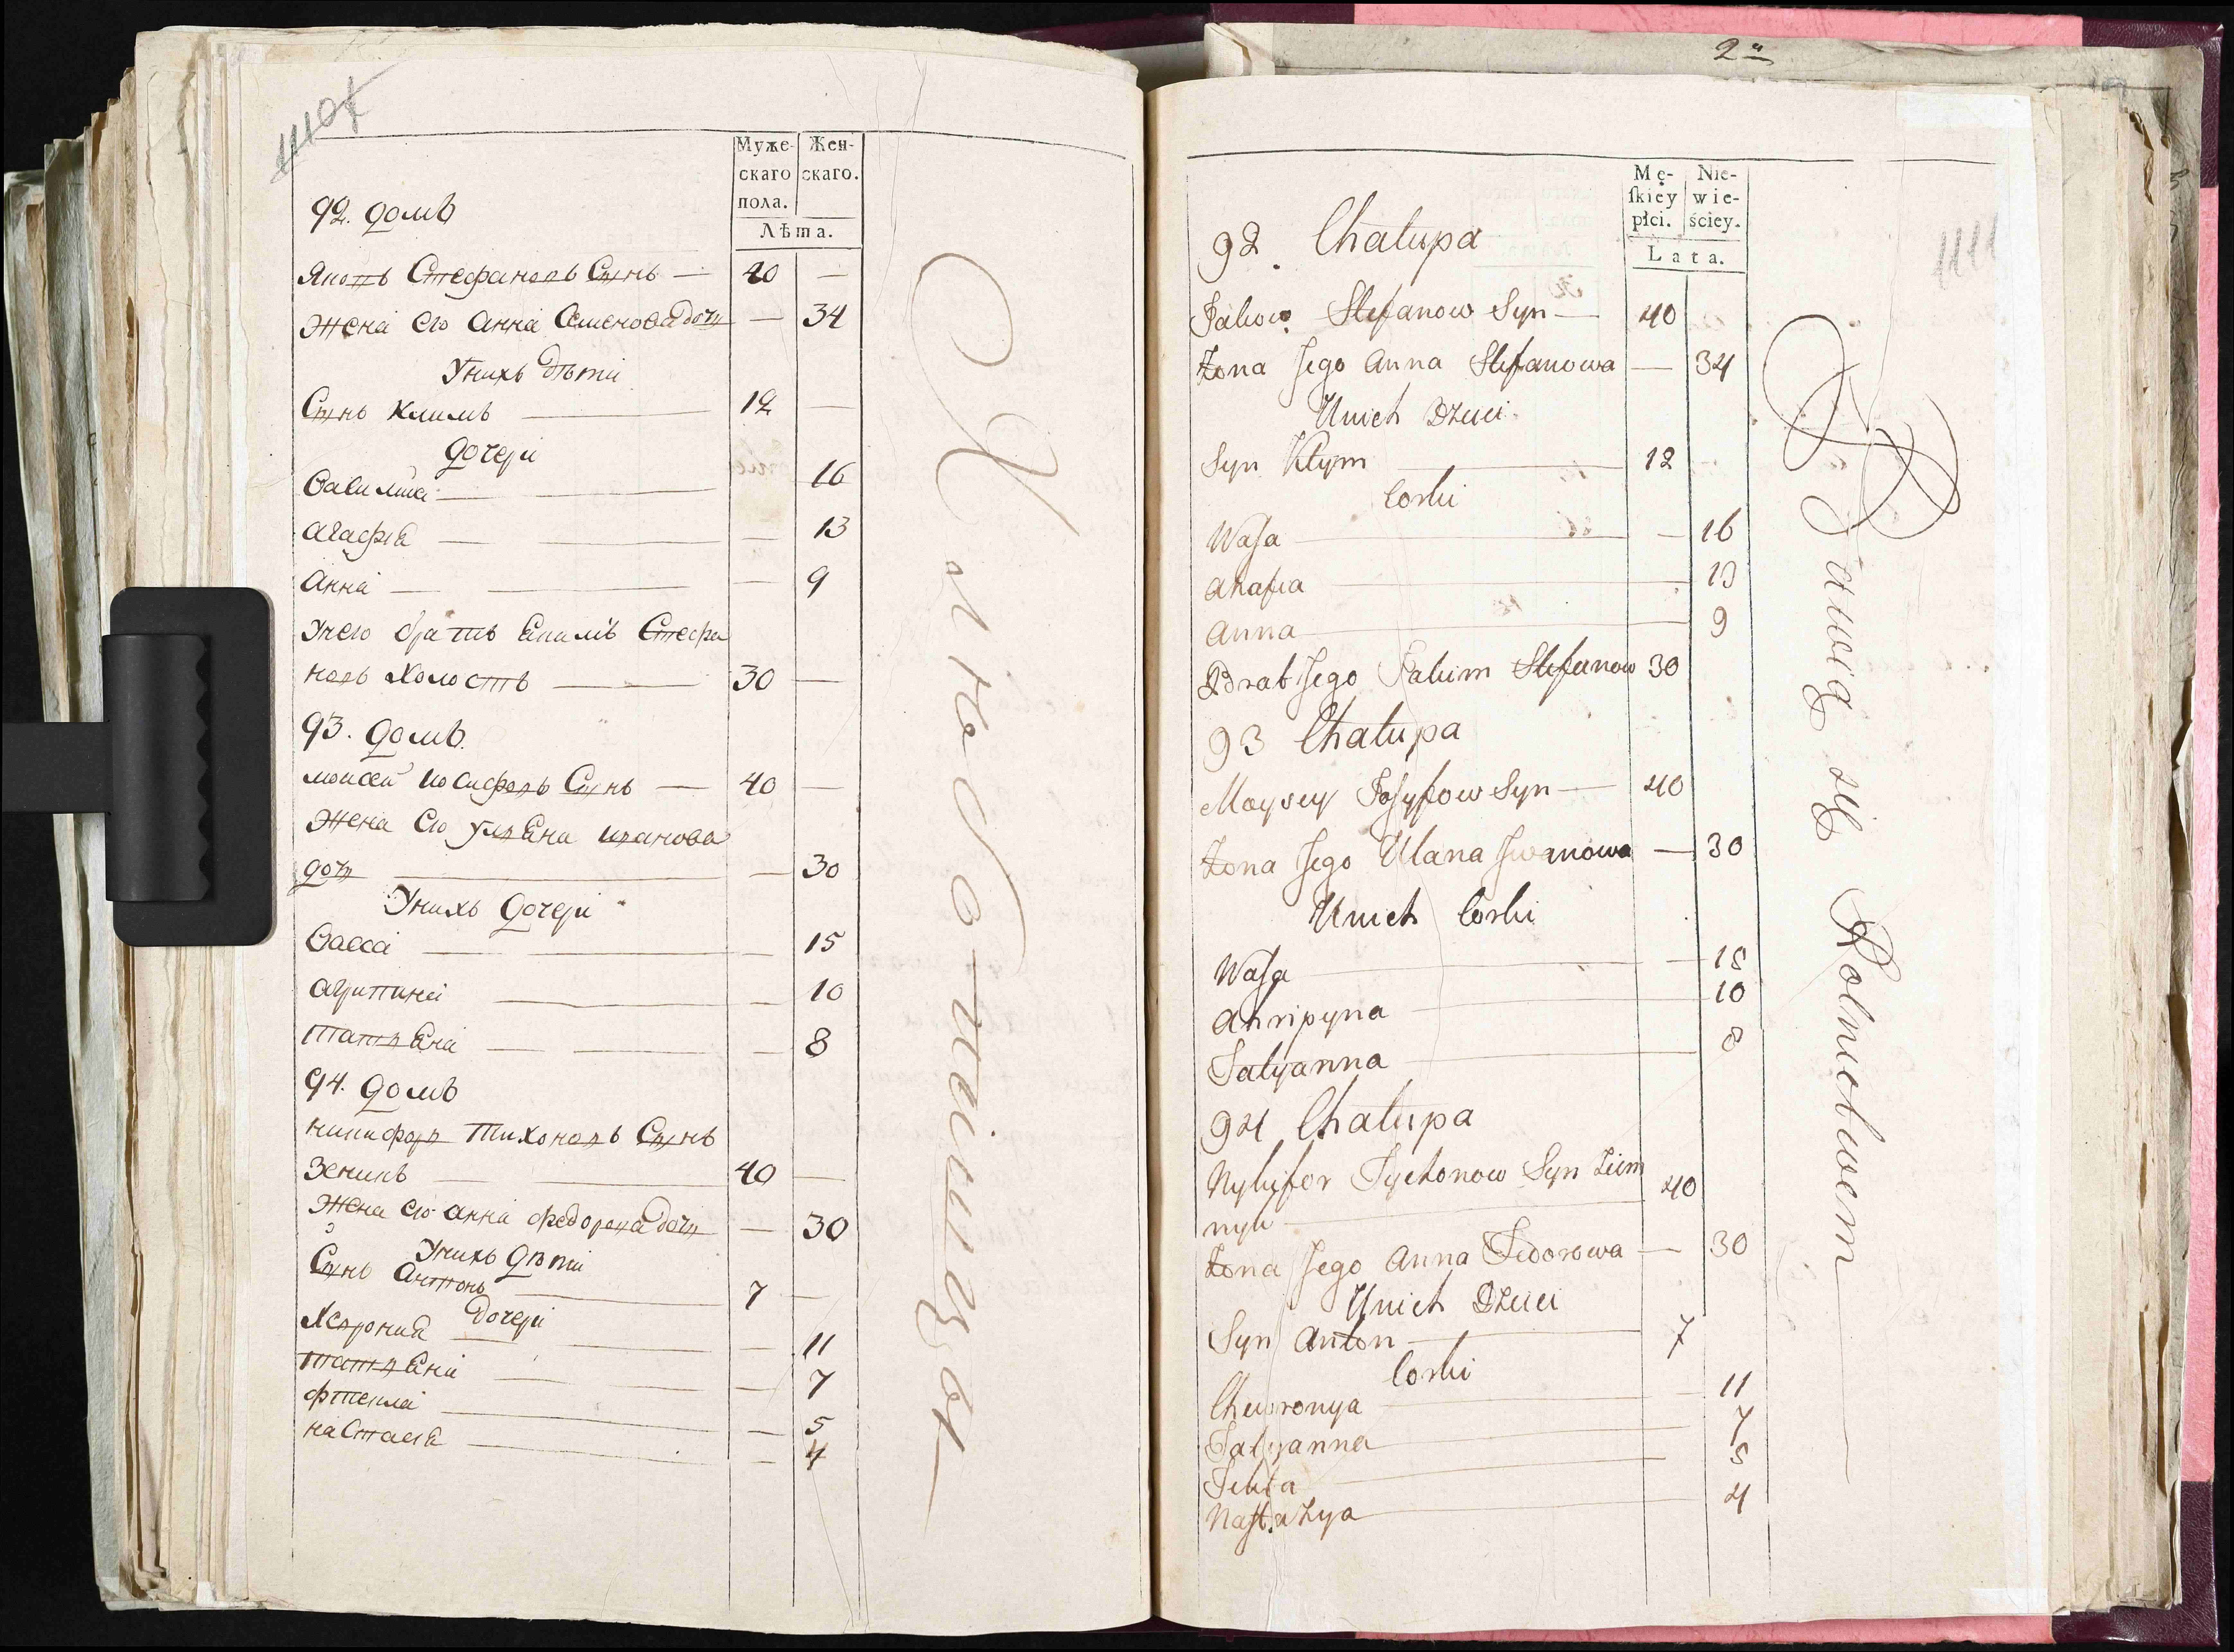 Муже-
скаго
пола.
Жен-
скаго.
Лѣта.
92. домъ
Яковъ Стефановъ Сынъ — 40 —
Жена его Анна Семенова дочь — 34
Унихъ дѣти
Сынъ Климъ — 12 —
дочери
16
Агафія — 13
Анна — 9
Унего братъ Екимъ Стефа
новъ холостъ — 30 —
93. домъ.
моисей иосифовъ Сынъ — 40 —
Жена его улѣяна иванова
дочь — 30
Унихъ дочери
Васса — 15
агрипина — 10
татіяна — 8
94. домъ
никифоръ Тихоновъ Сынъ
Зеникъ — 40 —
Жена его анна федорова дочь — 30
Унихъ дѣти
Сынъ Антонъ — 7 —
дочери
Хевронія — 11
татіяна — 7
фтекла — 5
настасія — 4
2
1111
Mę-
skiey
płci.
Nie-
wie-
ściey.
Lata.
92. Chałupa
Jakow Stefanow Syn — 40
Żona Jego Anna Stefanowa — 34
Unich Dzieci
Syn Kłym — 12
Corki
Wasa — 16
Ahafia 13
Anna — 9
Brat Jego Jakim Stefanow 30
93 Chałupa
Moysey Josyfow Syn — 40
Żona Jego Ulana Jwanowa — 30
Unich Corki
Wasa — 15
Ahripyna — 10
Tatyanna — 8
94 Chałupa
Nykifor Tychonow Syn Zien
nyk — 40
Żona Jego Anna Fedorowa — 30
Unich Dzieci
Syn Anton — 7
Corki
Chewronya — 11
Tatyanna — 7
Tekla 5
Nastazya — 4
Bawią się Rolnictwem